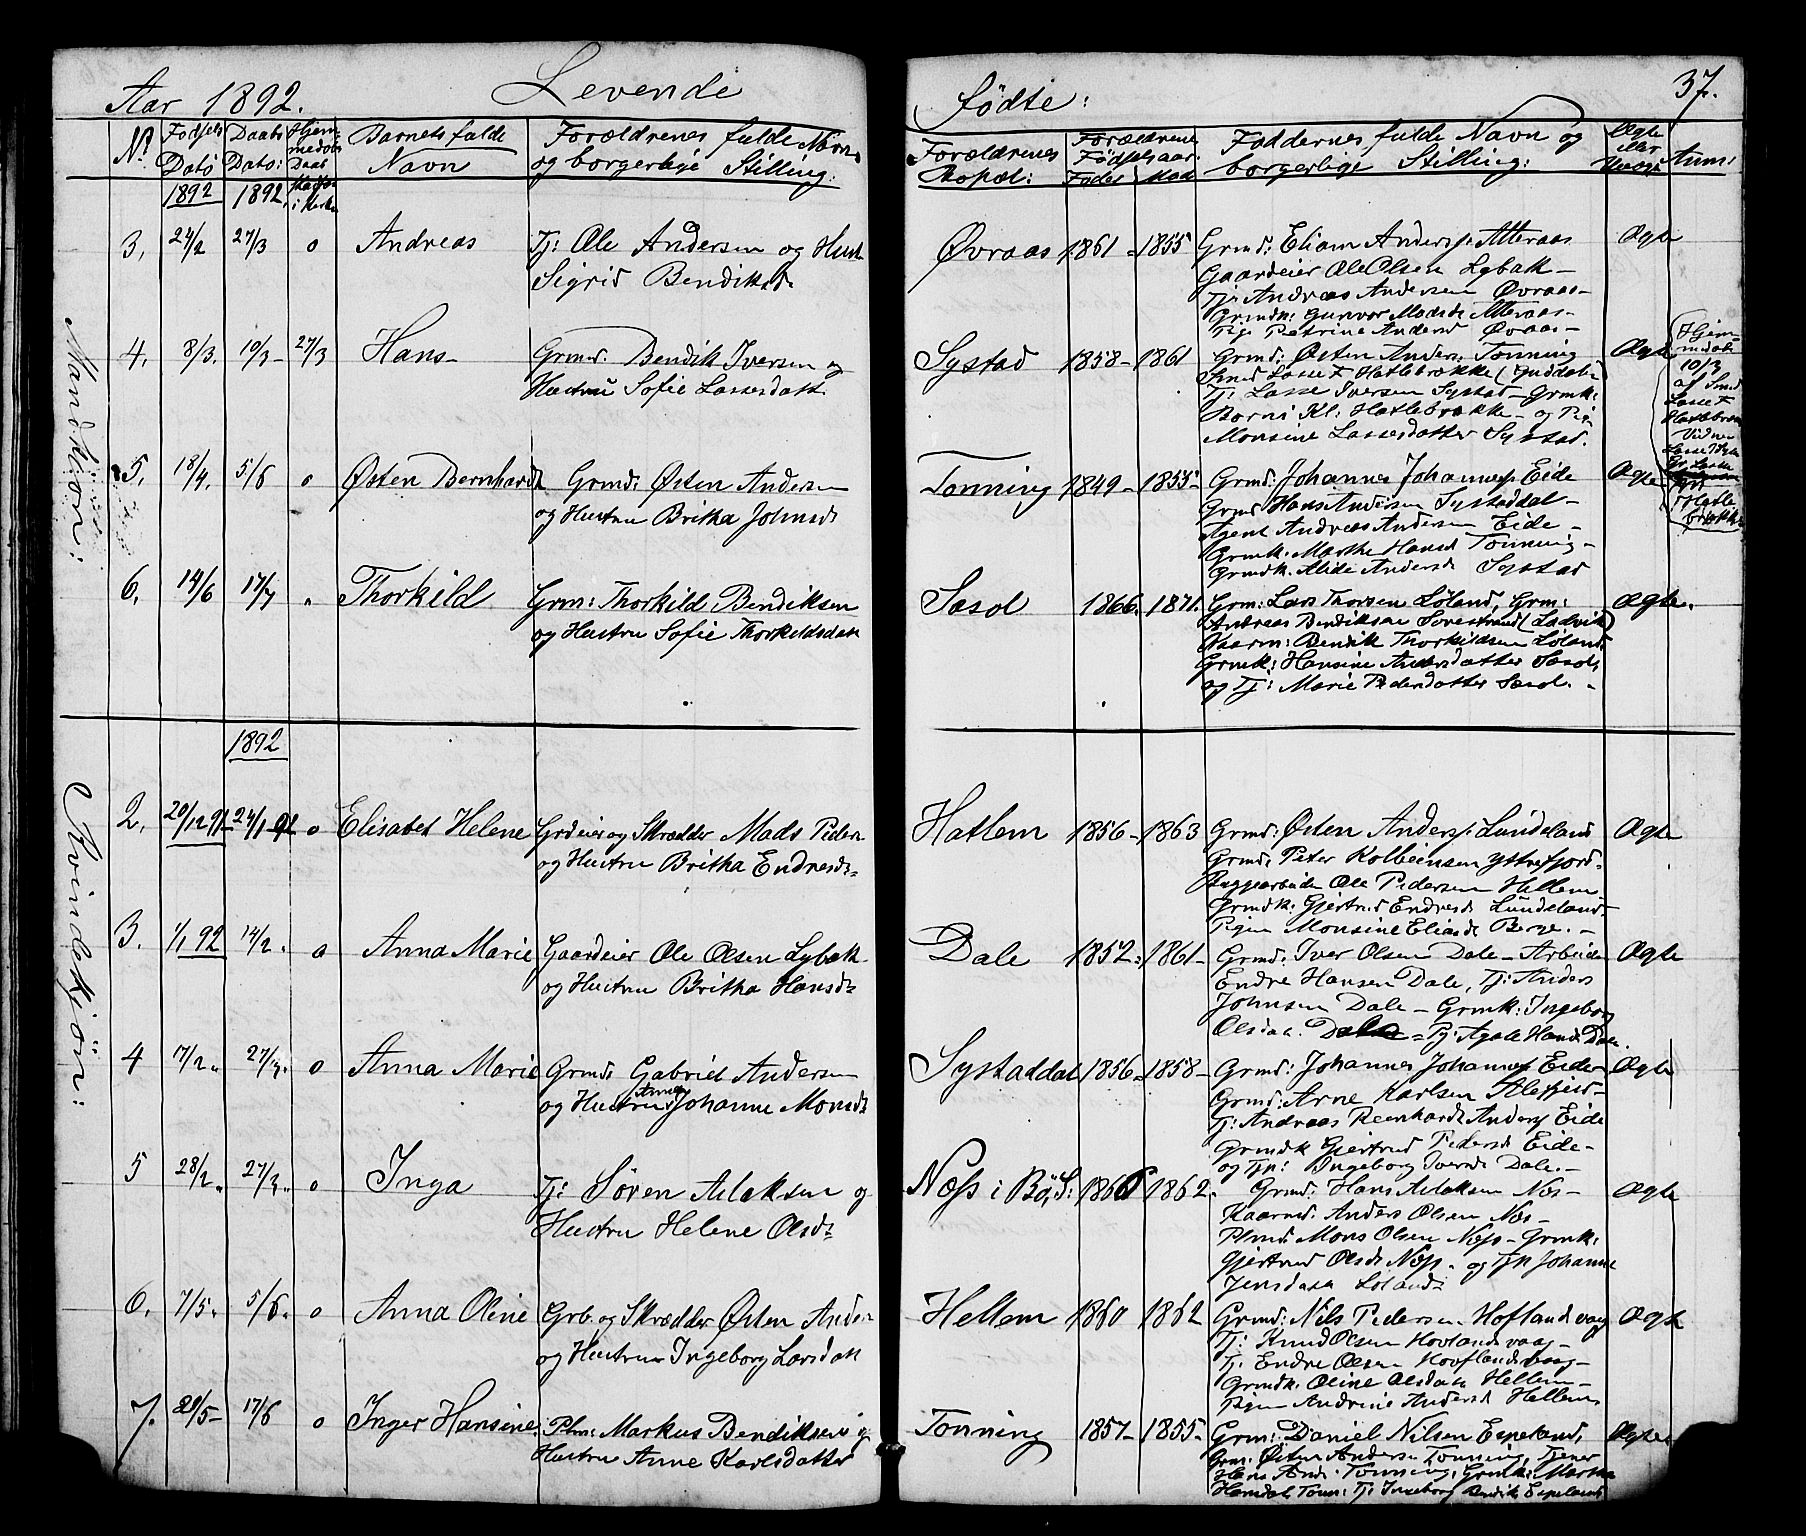 Aar 1892. Levende fødte: 37.
No. Fødsels Dato Daabs Dato: Barnets fulde Navn Forældrenes fulde Navn og borgerlige Stilling: Forældrenes Bopæl: Forældrenes Fødselsaar. Fader Moder Faddernes fulde Navn og borgerlige Stilling: Ægte eller Uægte Anm:
1892 1892.
Mandkjøn:
3. 24/2 27/3 o Andreas Tj: Ole Andersen og Hust
Sigrid Bendiksd.
Øvraas 1861 - 1855 Grmd: Eliam Anders. Atteraas Ægte
Gaardeier Ole Olsen Lybak -
Tj: Andreas Andersen Øvraas -
Grmdk: Gunvor Madsd. Atteraas -
Pige Petrine Andersd Øvraas -
4. 8/3. 10/3 - 27/3 Hans - Grmd. Bendik Iversen og
Hustru Sofie Lassesdatt.
Systad 1858 - 1861 Grmd: Østen Anders: Tonning Ægte
Smed Lasse T. Hatlebrække
Tj: Lasse Iversen Systad - Grmk:
Hatlebrække - og Pig.
Monsine Lassesdatter Systad.
Hjem
medøbt
10/3
af Smed
Lasse T.
Hatlebræk
Vidner
Hatle
brække
5. 18/4. 5/6 o Østen Bernhardt Grmd: Østen Andersen
og Hustru Britha Johnsd.
Tonning 1849 - 1855 - Grmd. Johannes Johannes. Eide Ægte
Grmd Hans Andersen Systaddal -
Agent Andreas Andersen Eide -
Grmk. Marthe Hansd Tonning -
Grmdk. Alide Andersd Systad
6. 14/6 17/7 " Thorkild Grm: Thorkild Bendiksen
og Hustru Sofie Thorkildsdatt
Sæsol 1866. 1871. Grm: Lars Thorsen Løland, Grm: Ægte.
Andreas Bendiksen Sørestrand (Ladvik)
Kaarm: Bendik Thorkildsen Løland,
Grmk: Hansine Andersdatter Sæsol,
og Tj: Marie Pedersdatter Sæsol. -
1892
Kvindekjøn:
2. 20/12 91 - 24/1 - 92 o Elisabet Helene Grdeier og Skrædder Mads Peder -
og Hustru Britha Endresd. -
Hatlem 1856 - 1863 Grmd: Østen Anders. Lundeland Ægte
Grmd. Peter Kolbeinsen Yttrefjord -
Byggearbeider Ole Pedersen Hellem
Grmdk: Gjertrud Endresd Lundeland -
Pigen Monsine Eliasd. Berge. -
3. 1/1 92 14/2. o Anna Marie Gaardeier Ole Olsen Lybak
og Hustru Britha Hansd -
Dale 1852 - 1861 - Grmd: Iver Olsen Dale - Arbeider Ægte
Endre Hansen Dale, Tj: Anders
Johnsen Dale - Grmk: Ingeborg
Olsdatt. Dale - Pg: Agate Hansd Dale.
4 7/2. 27/3. o Anna Marie Grmd: Gabriel Andersen
og Hustru Anna Johanne Monsd.
Systaddal 1856 - 1858 - Grmd: Johannes Johannes. Eide - Ægte
Grmd: Arne Karlsen
Tj: Andreas Reinhardt Anders. Eide
Grmdk Gjertrud Pedersd Eide -
og Tjn: Ingeborg Iversd. Dale. -
5 28/2. 27/3. o Inga Tj: Søren Aslaksen og
Hustru Helene Olsd.
Næss i Bø, S: 1866 1862. Grmd: Hans Aslaksen Næs - Ægte
Kaarmd: Anders Olsen Næs -
Plmd Mons Olsen Næss - Grmk:
Gjertrud Olsd Næss. - og Tjn Johanne
Jensdatt Løland.
6. 7/5. 5/6. o Anna Oline Grb. og Skrædder Østen Ander
og Hustru Ingeborg Larsdatt
Hellem 1860 - 1862 Grmd: Nils Pedersen Hoflandsvaag Ægte
Tj: Knud Olsen Hovlandsvaag -
Tj: Endre Olsen Hovflandsvaag -
Grmdk. Oline Olsdatt Hellem -
Pigen Andrine Andersd Hellem
7. 29/5 - 17/6 o Inger Hansine Plm: Markus Bendiksen og
Hustru Anne Karlsdatter
Tonning 1857 - 1855 - Grm: Daniel Nilsen Espeland, Ægte.
Grm: Østen Andersen Tonning, Tjener
Hans Ands. Tonning, Grmk: Martha
Hansdatt. Tonn: Tj: Ingeborg Bendiks Espeland